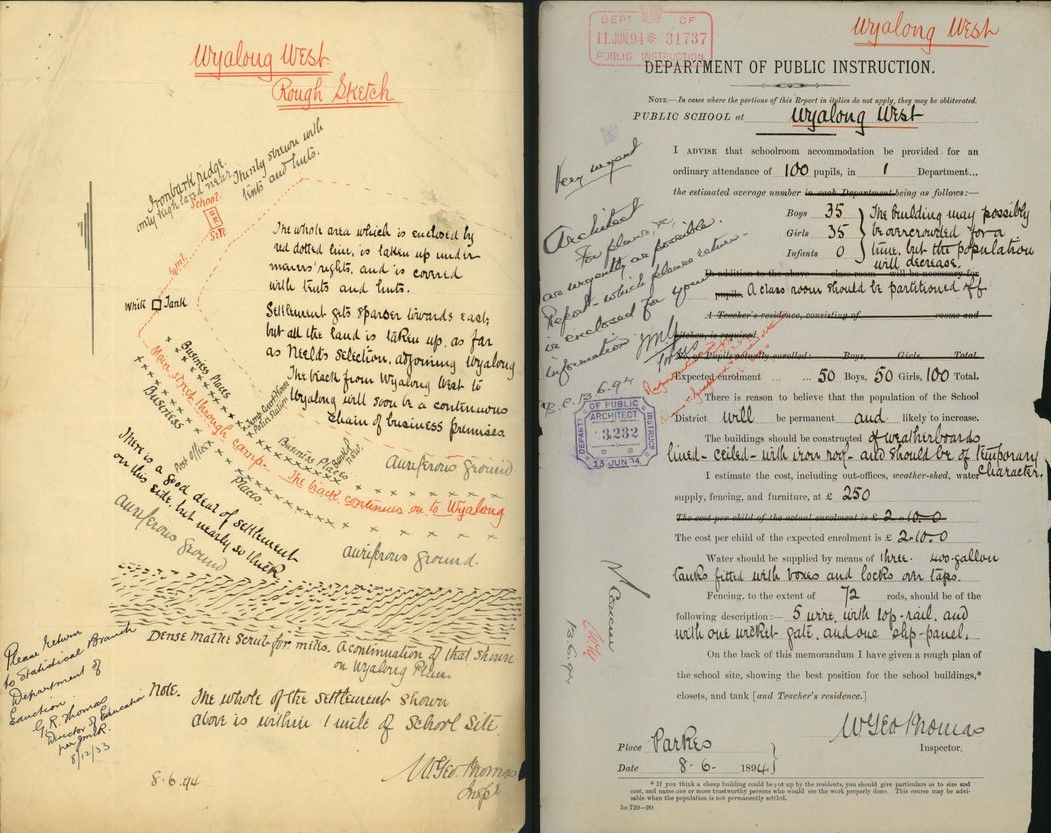 Wyalong West
Rough Sketch
Ironbark ridge.
only high land near
Thinly strewn with
tents and huts.
School
Site
The whole area which is enclosed by
red dotted line, is taken up under
miners' rights, and is covered
with tents and huts.
Settlement gets sparser towards east;
but all the land is taken up, as far
as Neeld's selection, adjoining Wyalong
The track from Wyalong West to
Wyalong will soon be a continuous
chain of business premises.
White Tank
Main street through camp.
Business Places
Business
Places.
Post office
Business Places
The track continues on to Wyalong
Auriferous Ground
There is a good deal of settlement
on this side, but nearly so thick
Auriferous
Ground
Auriferous Ground.
Dense Mallee Scrub for miles. A continuation of that shown
on Wyalong Plan.
Note. The whole of the settlement shown
above is within 1 mile of School Site.
Please return
to Statistical Branch
Department of
Education
G. R. Thomas
Director of Education
8/12/33
8.6.94
W Geo Thomas
Inspr
DEPT OF
11.JUN.94 * 31737
PUBLIC INSTRUCTION
Wyalong West
DEPARTMENT OF PUBLIC INSTRUCTION.
NOTE.—In cases where the portions of this Report in italics do not apply, they may be obliterated.
PUBLIC SCHOOL at Wyalong West
I ADVISE that schoolroom accommodation be provided for an
ordinary attendance of 100 pupils, in 1 Department...
the estimated average number in each Department being as follows:—
Boys 35
Girls 35
Infants 0
The building may possibly
be overcrowded for a
time, but the population
will decrease.
In addition to the above class room will be necessary for
pupils. A class room should be partitioned off
A Teacher's residence, consisting of rooms and
kitchen, is required.
No. of Pupils actually enrolled: Boys, Girls, Total.
Expected enrolment ... ... 50 Boys, 50 Girls, 100 Total.
There is reason to believe that the population of the School
District will be permanent and likely to increase.
The buildings should be constructed of weatherboards
lined - ceiled - with iron roof - and should be of temporary
character.
I estimate the cost, including out-offices, weather-shed, water
supply, fencing, and furniture, at £ 250
The cost per child of the actual enrolment is £ 2-10-0
The cost per child of the expected enrolment is £ 2-10-0
Water should be supplied by means of three 400-gallon
tanks fitted with boxes and locks on taps.
Fencing, to the extent of 72 rods, should be of the
following description:— 5 wire, with top-rail, and
with one wicket gate, and one slip-panel.
On the back of this memorandum I have given a rough plan of
the school site, showing the best position for the school buildings,*
closets, and tank [and Teacher's residence.]
W Geo Thomas
Inspector.
Place Parkes
Date 8-6- 1894
* If you think a cheap building could be put up by the residents, you should give particulars as to size and
cost, and name one or more trustworthy persons who would see the work properly done. This course may be advi-
sable when the population is not permanently settled.
5a 720—90
Very urgent
Architect
For plans, &c,
as urgently as possible.
Report - which please return -
is enclosed for your
information
13.6.94
DEPARTT OF PUBLIC INSTRUCT
ARCHITECT
3232
13 JUN 94
13.6.94